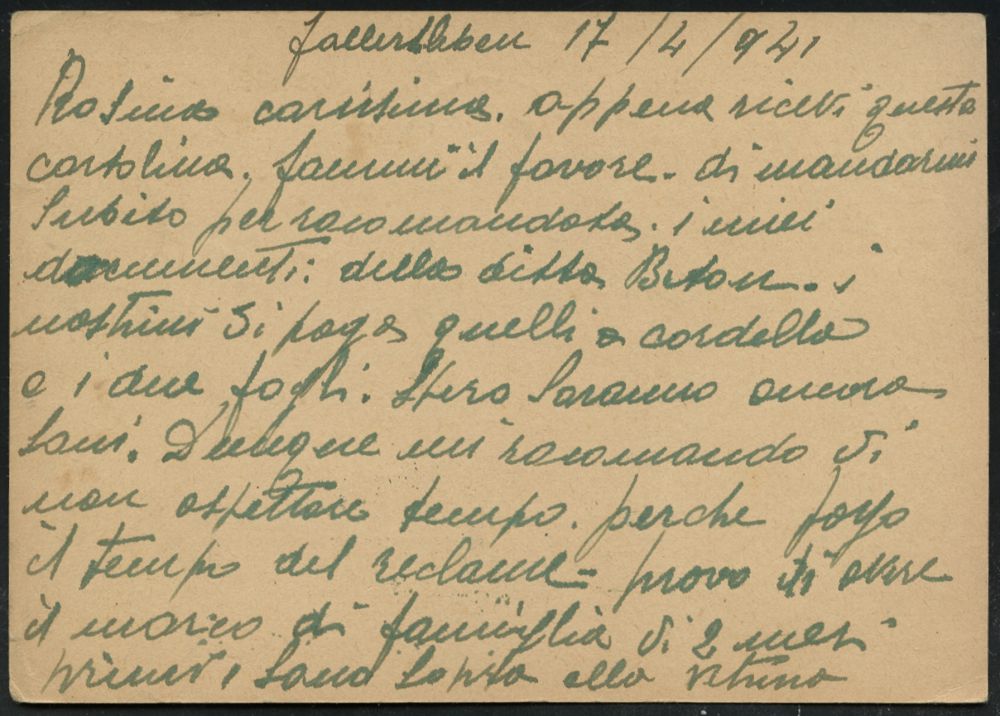 Fallersleben 17/4/941
Rosina carissima. appena ricevi questa
cartolina. fammi il favore. di mandarmi
Subito per racomandata. i miei
documenti: della ditta Beton. i
nostrini Si paga quelli a cordella
e i due fogli. Spero Saranno ancora
Sani. Dunque mi racomando di
non aspettare tempo. perche
il tempo del reclame- provo di avere
il marco di famiglia di 2 mesi
primi, Sono Sopra alla vetrina